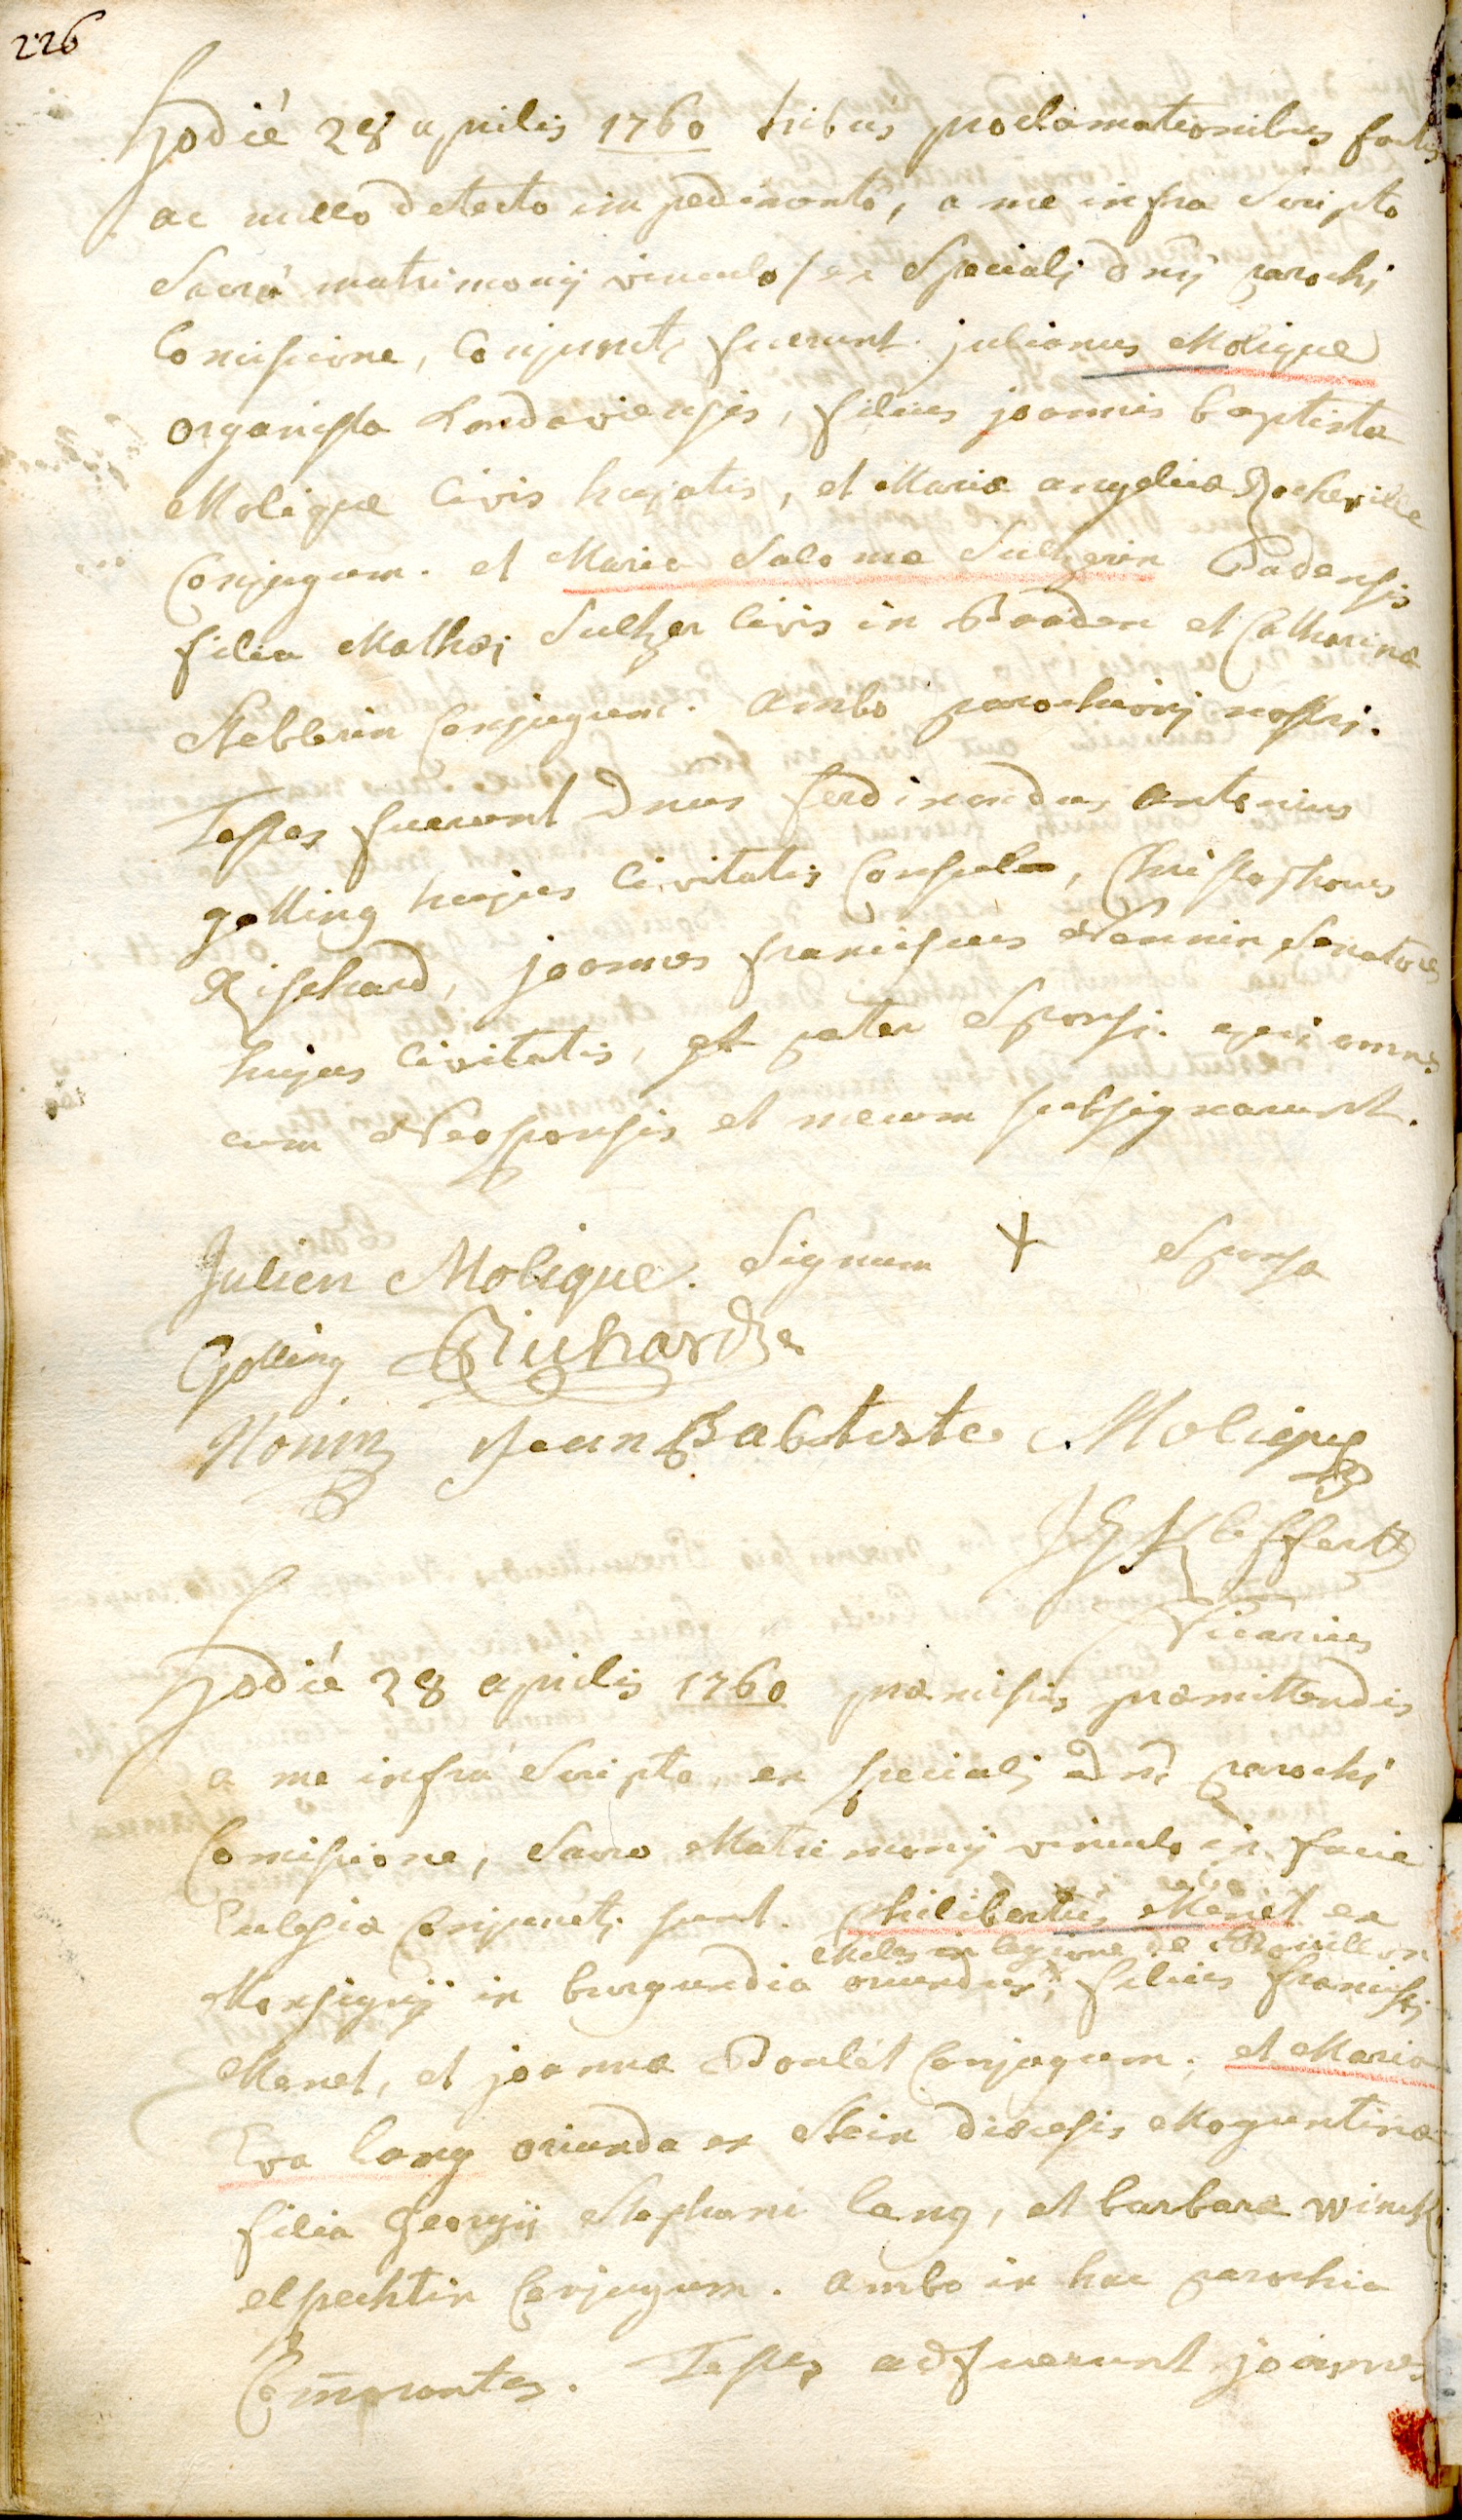 226
Hodié 28 aprilis 1760 tribus proclamationibus factis
ac nullo detecto impedimento, a me infra Scripto
Sacro matrimonij vinculo / ex Specialj dnij parochi
Comissione, Conjunctj fuerunt. julianus Molique
organista Landaviensis, filius joannis baptistæ
Molique Civis hujatis, et Mariæ angelicæ Rocheville
Conjugum. et Maria Salome Sultzerin Badensis
filia Mathæj Sultzer Civis in Baaden et Catharinæ
Steblerin Conjugum. Ambo parochianj nostrj.
Testes fuerunt Dnus ferdinandus antonius
golling hujus Civitatis Consul, Christophorus
Rischard, joannes franciscus Nonnin Senatores
hujus Civitatis, et pater Sponsi. qui omnes
cum Neosponsis et mecum subsignarunt.
Julien Molique. Signum + Sponsa
Golling Richard
Nonin Jean Babtiste Molique
Vicarius
Hodié 28 aprilis 1760 præmissis præmittendis
a me infrá Scripto ex specialj dni parochi
Comissione, Sacro Matrimonij vinculo in facie
Eclesiæ Conjunctj sunt. philibertus Menet ex
Miles in legione de
in burgundia oriundus, filius francisci
Menet, et joannæ Boulét Conjugum. et Maria
Eva lang oriunda ex Stein diœcesis Moguntinæ
filia Georgij Stephani lang, et barbaræ winck
elpechtin Conjugum. Ambo in hac parochia
Comorantes. Testes adfuerunt joannes